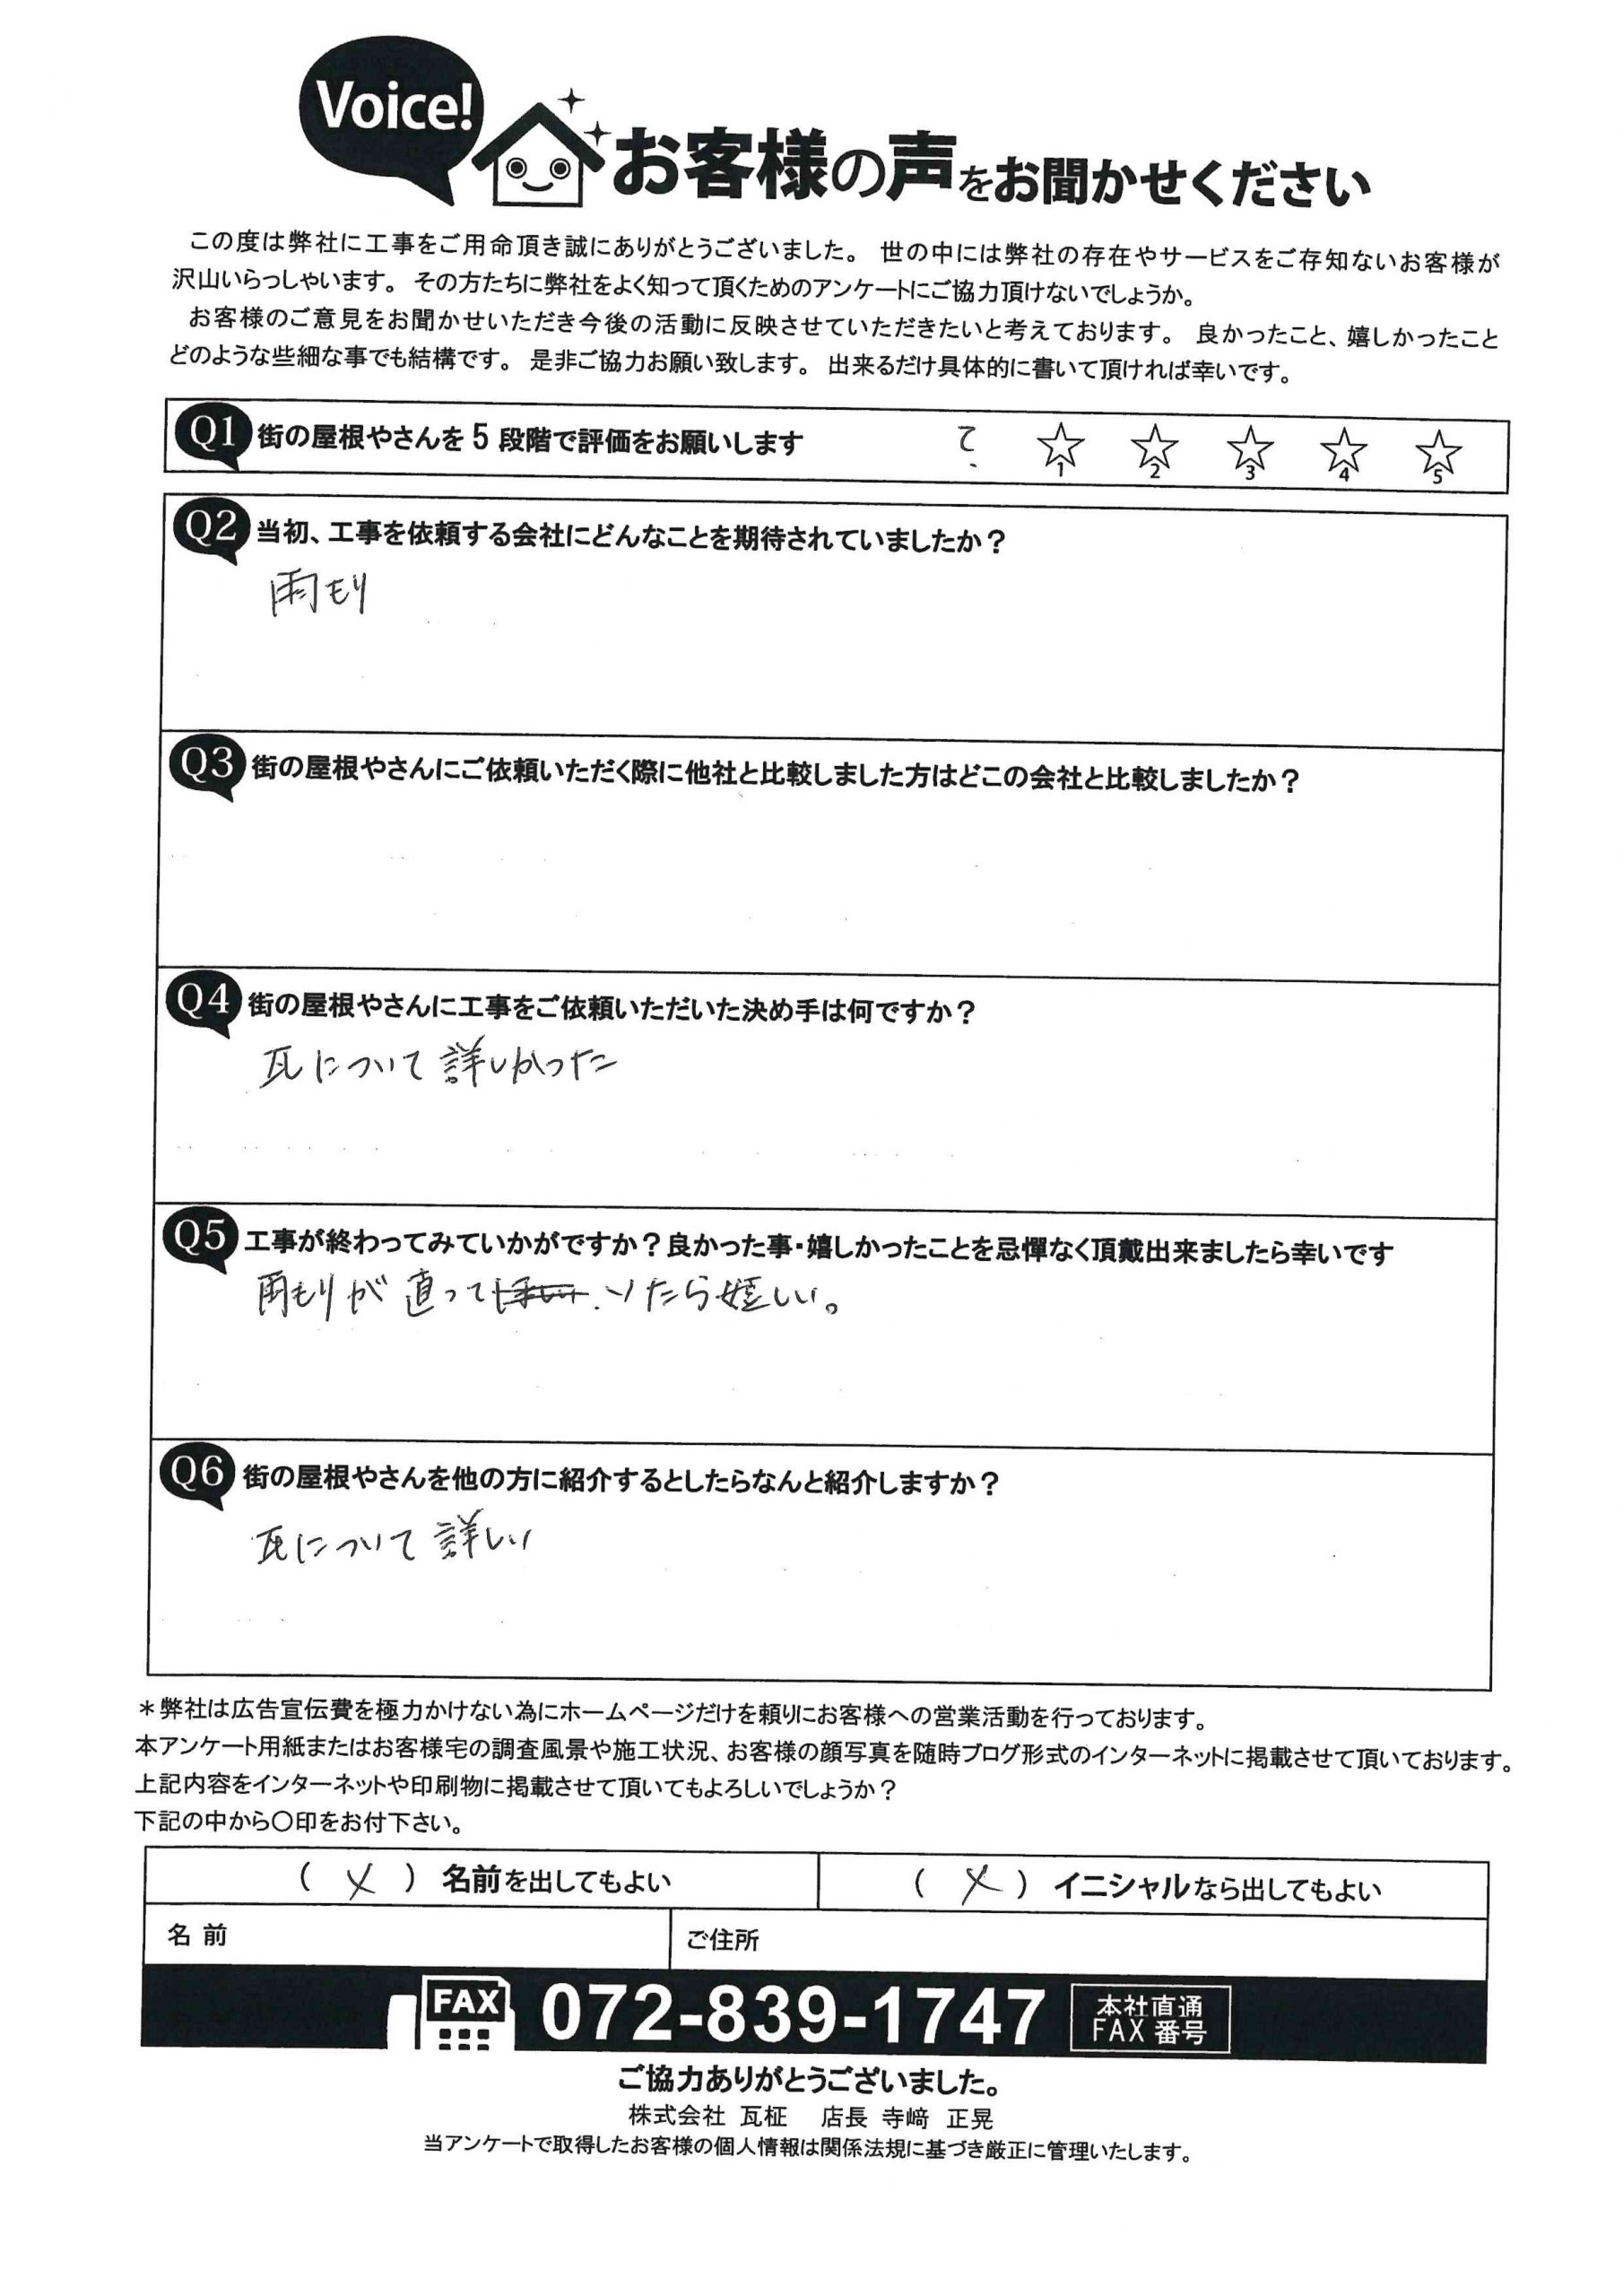 Voice!
お客様の声をお聞かせください
この度は弊社に工事をご用命頂き誠にありがとうございました。 世の中には弊社の存在やサービスをご存知ないお客様が
沢山いらっしゃいます。 その方たちに弊社をよく知って頂くためのアンケートにご協力頂けないでしょうか。
お客様のご意見をお聞かせいただき今後の活動に反映させていただきたいと考えております。 良かったこと、嬉しかったこと
どのような些細な事でも結構です。 是非ご協力お願い致します。 出来るだけ具体的に書いて頂ければ幸いです。
Q1 街の屋根やさんを 5 段階で評価をお願いします ? ☆1 ☆2 ☆3 ☆4 ☆5
Q2 当初、工事を依頼する会社にどんなことを期待されていましたか？
雨もり
Q3 街の屋根やさんにご依頼いただく際に他社と比較しました方はどこの会社と比較しましたか？
Q4 街の屋根やさんに工事をご依頼いただいた決め手は何ですか？
瓦について詳しかった
Q5 工事が終わってみていかがですか？良かった事・嬉しかったことを忌憚なく頂戴出来ましたら幸いです
雨もりが直って いたら嬉しい。
Q6 街の屋根やさんを他の方に紹介するとしたらなんと紹介しますか？
瓦について詳しい
＊弊社は広告宣伝費を極力かけない為にホームページだけを頼りにお客様への営業活動を行っております。
本アンケート用紙またはお客様宅の調査風景や施工状況、お客様の顔写真を随時ブログ形式のインターネットに掲載させて頂いております。
上記内容をインターネットや印刷物に掲載させて頂いてもよろしいでしょうか？
下記の中から〇印をお付下さい。
（ × ） 名前を出してもよい （ × ） イニシャルなら出してもよい
名 前 ご住所
FAX 072-839-1747 本社直通
FAX 番号
ご協力ありがとうございました。
株式会社 瓦柾 店長 寺﨑 正晃
当アンケートで取得したお客様の個人情報は関係法規に基づき厳正に管理いたします。